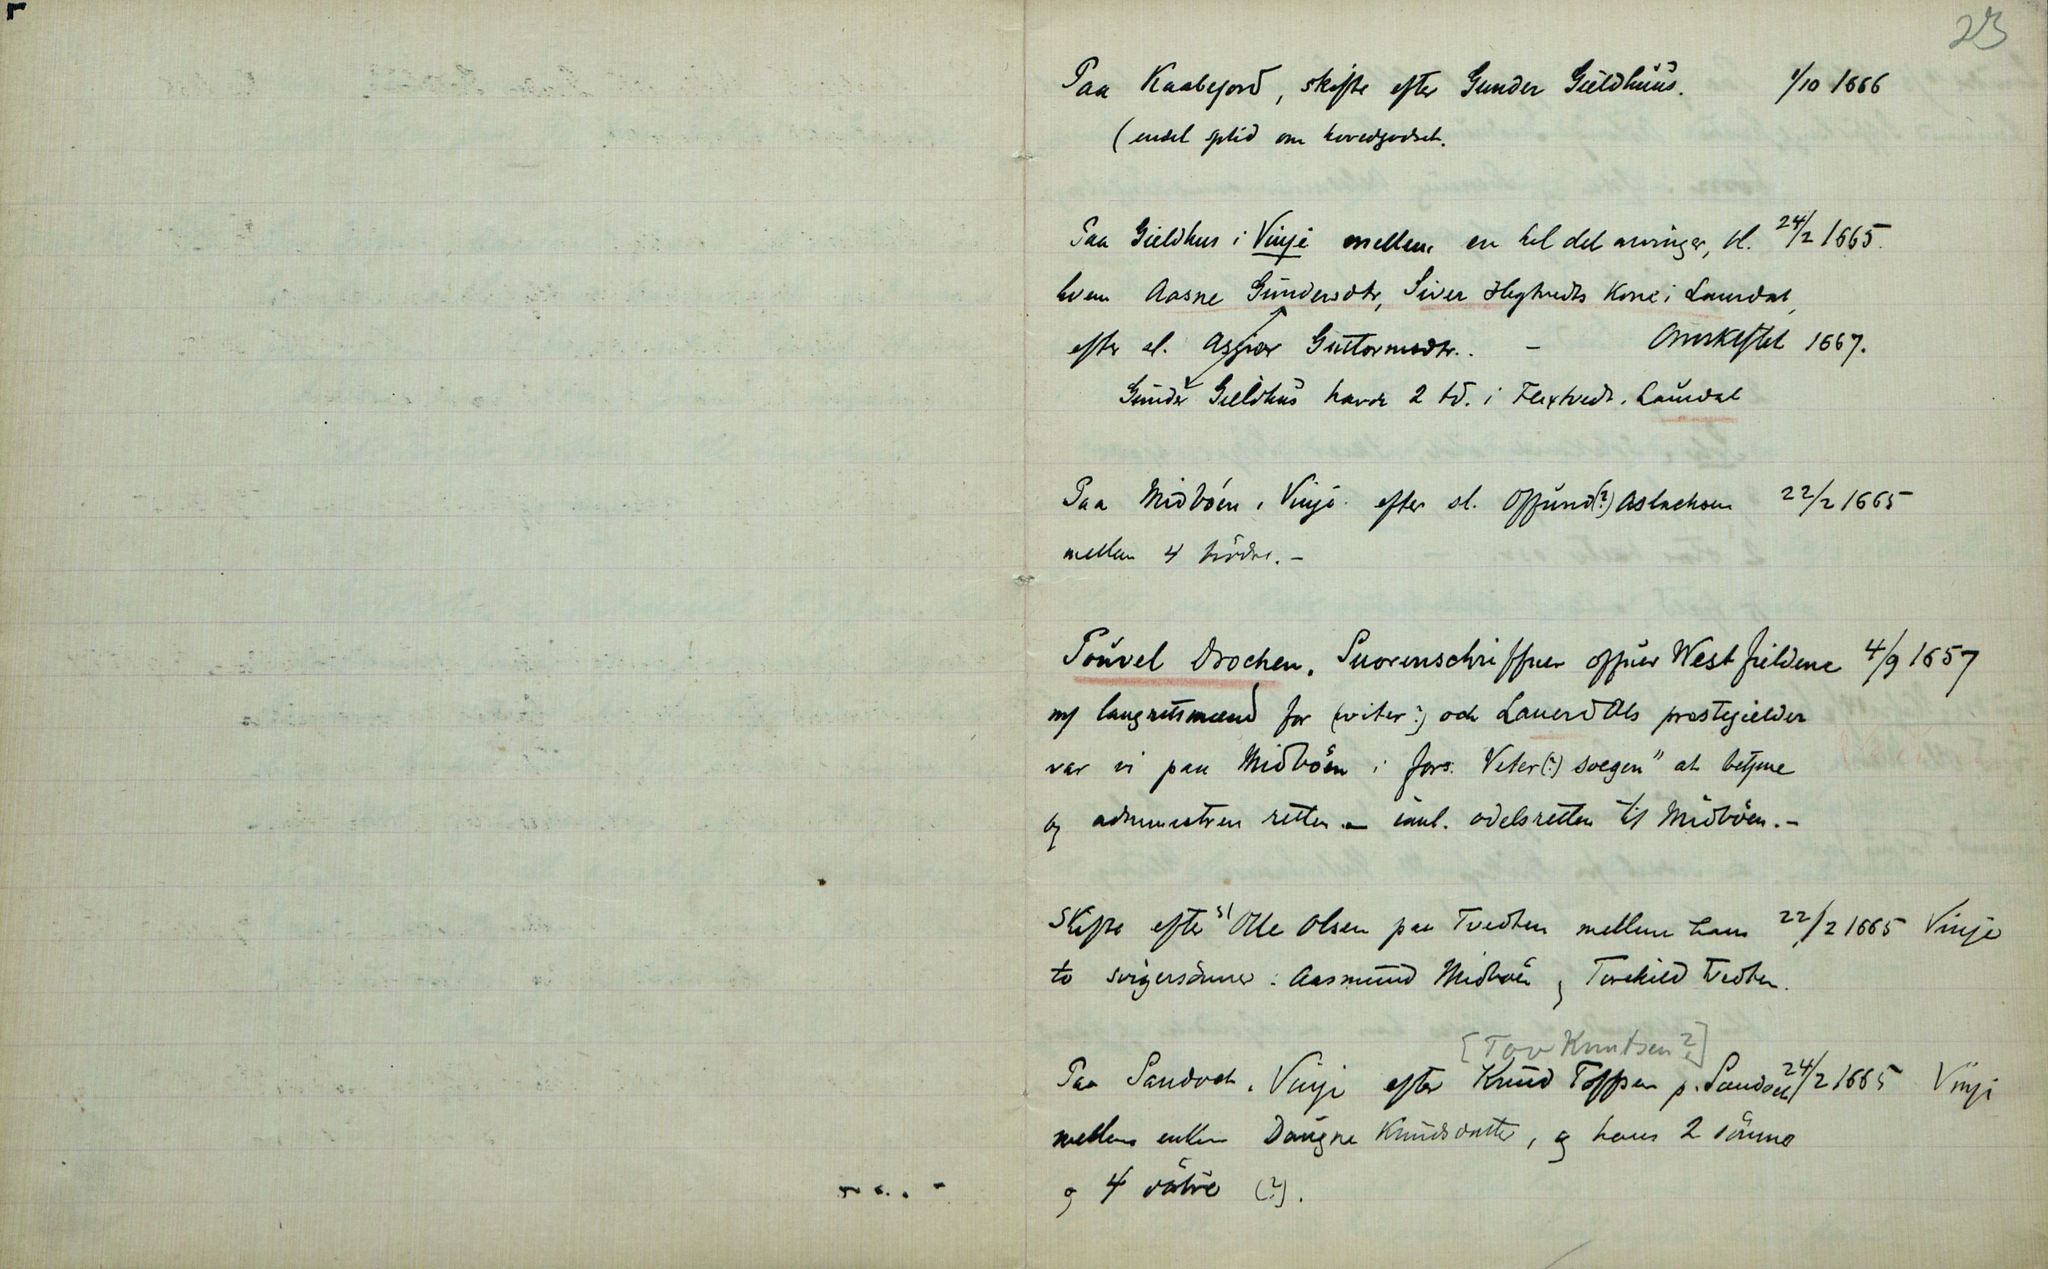 23
Paa Kaabefjord, skifte efter Gunder Gieldhuus. 1/10 1666
(endel split om hovedgodset.
Paa Gieldhus i Vinje mellem en hel del arvinger, bl. 24/2 1665.
hvem Aasne Gundersdtr, Siver Hegtvedts Kone i Laurdal,
efter sl. Asgier Guttormsdtr. – Omskiftet 1667.
Gunder Gieldhus havde 2 td. i Flextvedt. Laurdal
Paa Midbøen i Vinje efter sl. Offuind(?) Aslachsen 22/2 1665
mellem 4 brødre. –
Pouvel Brochen. Suorenschriffuer offuer Westfieldene 4/9 1657
m/ laugrettsmænd for (witer?) och Lauerdals prestegielder
var vi paa Midbøen i fors. Veter(?) soegen" at betjene
og administrere retten – ianl. odelsretten til Midbøen. –
Skifte efter sl Olle Olsen paa Tvedten mellem hans 22/2 1665 Vinje
to svigersønner: Aasmund Midbøe og Torekild Tvedten.
[Tov Knutsen?]
Paa Sandoch i Vinje efter Knud Toffsen p. Sandoch 24/2 1665 Vinje
mellem enken Daugne Knudsdatter, og hans 2 sønner
og 4 døtre (?).